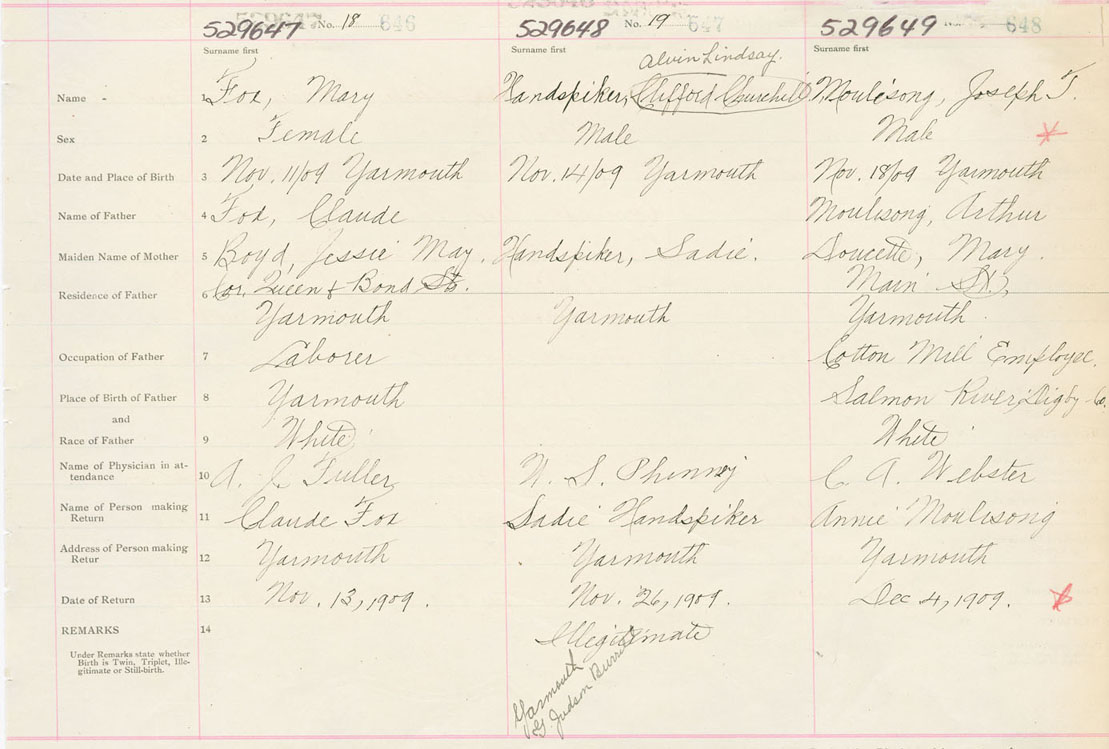 529647 No. 18 646 529648 No. 19 647 529649 No. 648
Surname first Surname first Surname first
Alvin Lindsay.
Name - 1 Fox, Mary Handspiker, Clifford Churchill Moulisong, Joseph T.
Sex 2 Female Male Male
Date and Place of Birth 3 Nov. 11/09 Yarmouth Nov. 14/09 Yarmouth Nov. 18/09 Yarmouth
Name of Father 4 Fox, Claude Moulisong, Arthur
Maiden Name of Mother 5 Boyd, Jessie May. Handspiker, Sadie. Doucette, Mary
Residence of Father 6 Cor. Queen & Bond Sts. Main St.
Yarmouth Yarmouth Yarmouth
Occupation of Father 7 Laborer Cotton Mill Employee.
Place of Birth of Father 8 Yarmouth Salmon River, Digby Co.
and
Race of Father 9 White White
Name of Physician in at-
tendance 10 A. J. Fuller W. S. Phinney C. A. Webster
Name of Person making
Return 11 Claude Fox Sadie Handspiker Annie Moulisong
Address of Person making
Retur 12 Yarmouth Yarmouth Yarmouth
Date of Return 13 Nov. 13, 1909. Nov. 26, 1909. Dec 4, 1909.
REMARKS 14 Illegitimate
Under Remarks state whether
Birth is Twin, Triplet, Ille-
gitimate or Still-birth.
Yarmouth
G. Judson Burrill